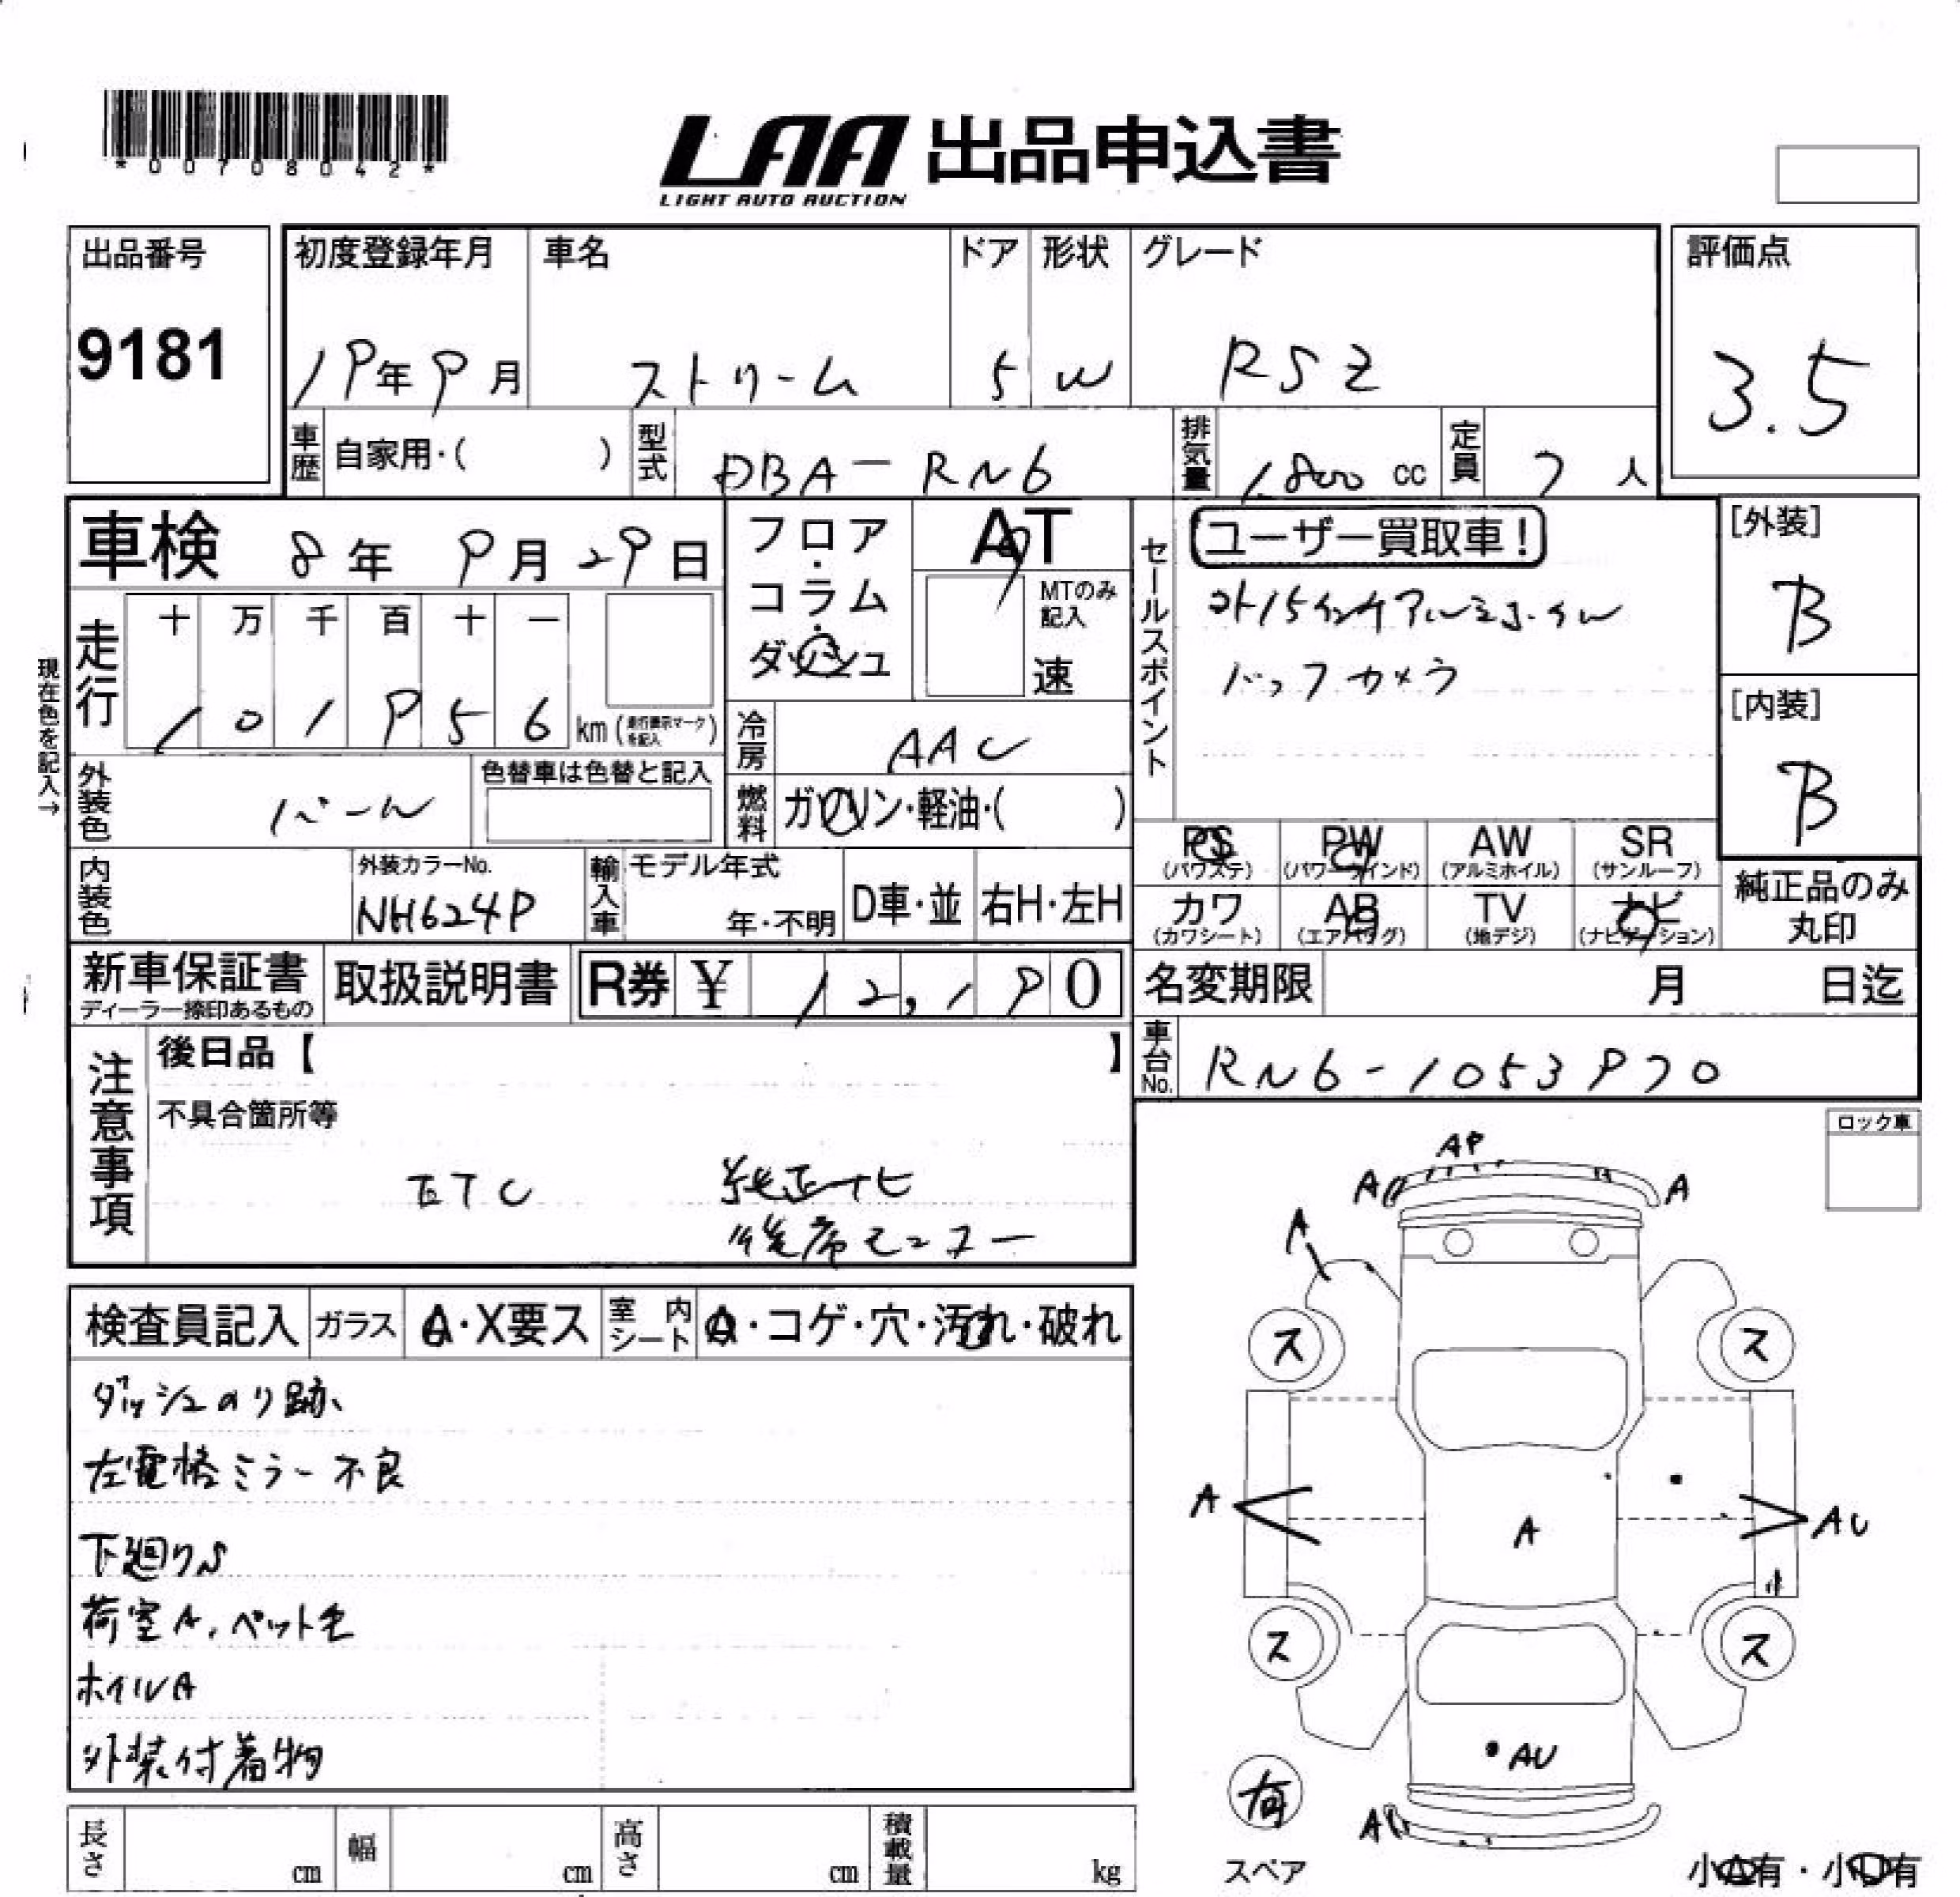 *00708042*
LAA 出品申込書
LIGHT AUTO AUCTION
出品番号
9181
初度登録年月
19年9月
車名
ストリーム
ドア
5
形状
W
グレード
RSZ
評価点
3.5
車歴
自家用・( )
型式
DBA-RN6
排気量
1,800 cc
定員
7 人
車検 8年 9月 29日
フロア・コラム・ダッシュ
AT
MTのみ記入
速
セールスポイント
ユーザー買取車!
ガイ15インチアルミホイル
バックカメラ
[外装]
B
[内装]
B
現在色を記入→
走行
十 万 千 百 十 一
1 0 1 9 5 6 km (走行表示マークを記入)
冷房
AAC
外装色
パール
色替車は色替と記入
燃料
ガソリン・軽油・( )
PS (パワステ)
PW (パワーウインド)
AW (アルミホイル)
SR (サンルーフ)
内装色
外装カラーNo.
NH624P
輸入車
モデル年式
年・不明
D車・並
右H・左H
カワ (カワシート)
AB (エアバッグ)
TV (地デジ)
ナビ (ナビゲーション)
純正品のみ丸印
新車保証書
ディーラー捺印あるもの
取扱説明書
R券 ¥ 12,190
名変期限 月 日迄
注意事項
後日品【 】
車台No.
RN6-1053970
不具合箇所等
ETC 純正ナビ
後席モニター
ロック車
検査員記入
ガラス
A・X要ス
室内シート
A・コゲ・穴・汚れ・破れ
ダッシュのり跡
左電格ミラー不良
下廻りS
荷室A、ペット毛
ホイルA
外装付着物
AP
A
A
A
ス
ス
A
A
AU
ス
ス
AU
A
有
スペア
小A有・小U有
長さ cm
幅 cm
高さ cm
積載量 kg